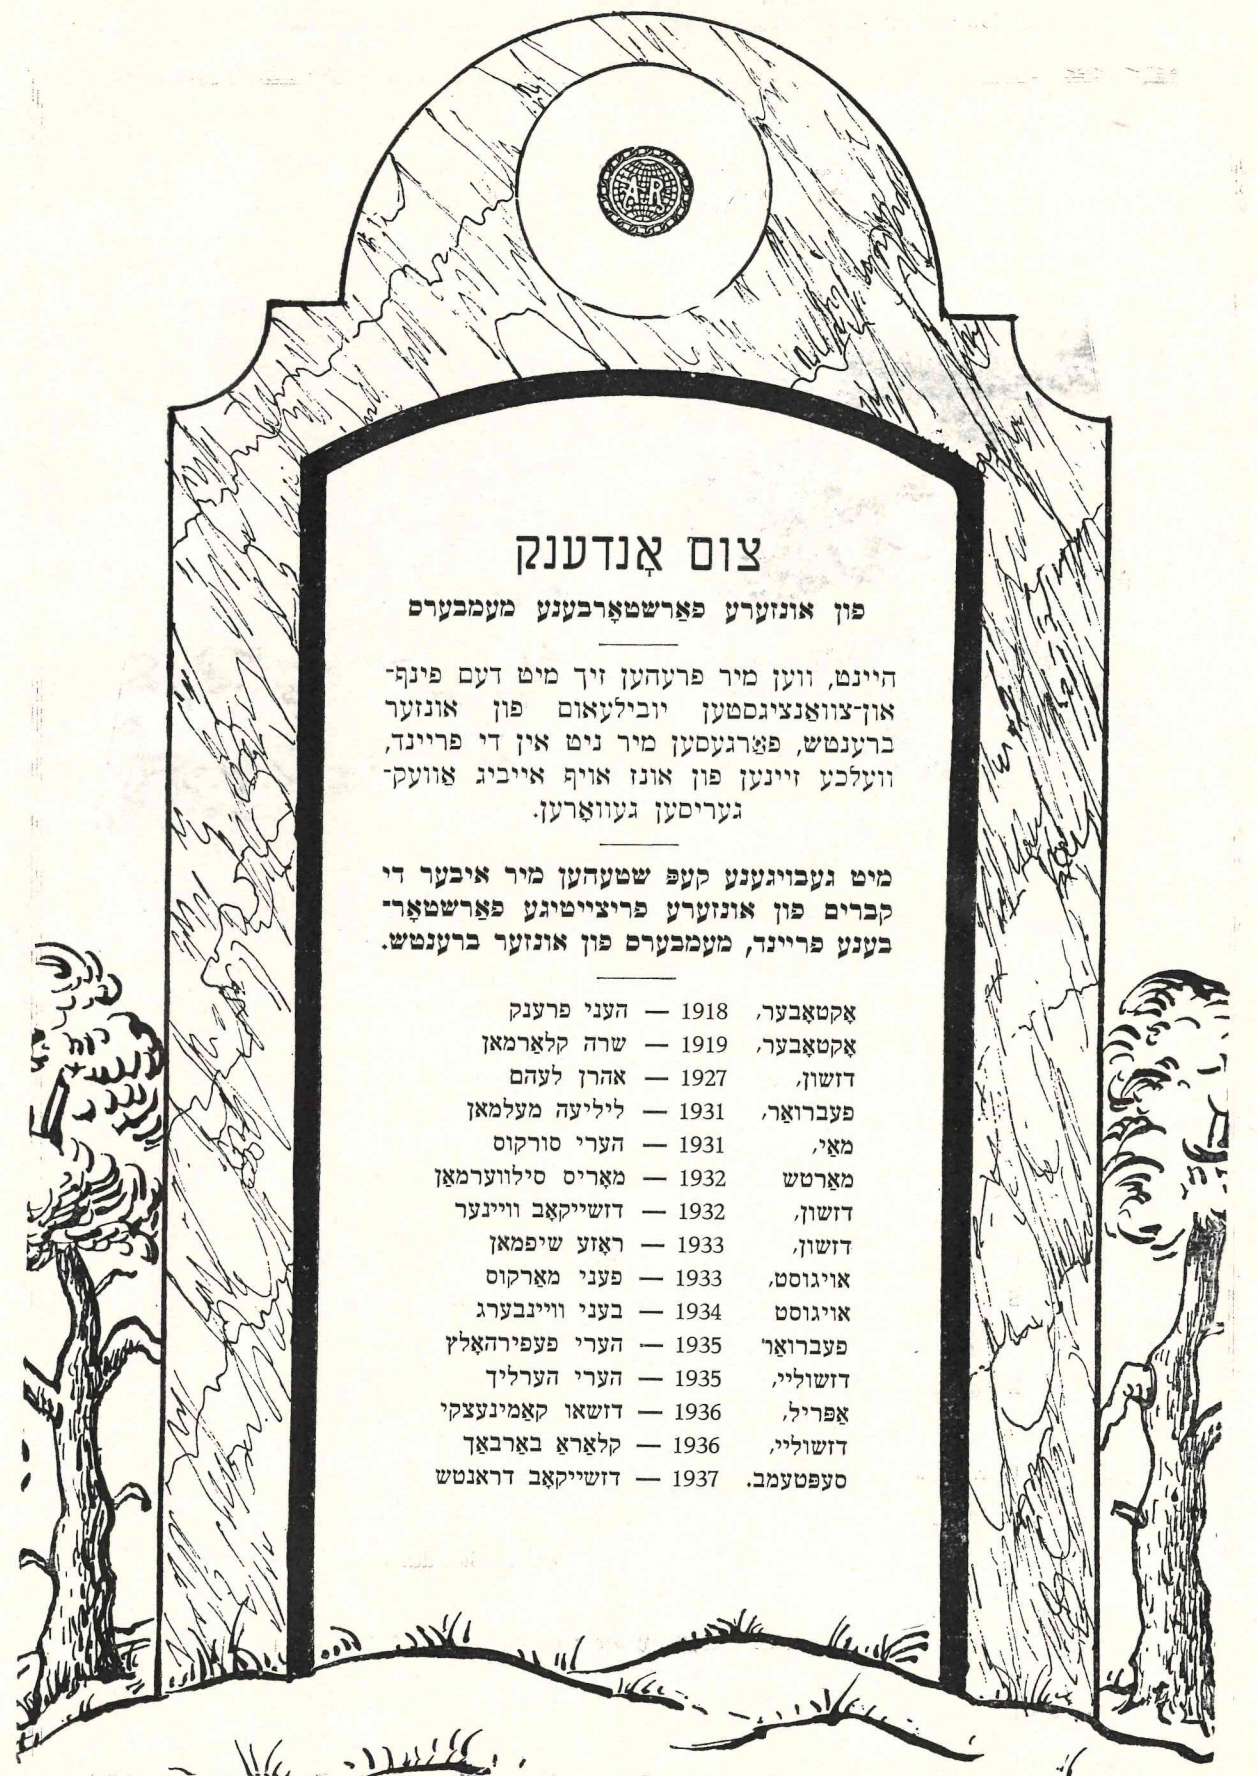 A R
צום אָנדענק
פון אונזערע פאַרשטאָרבענע מעמבערס
היינט, ווען מיר פרעהען זיך מיט דעם פינף-
און-צוואַנציגסטען יובילעאום פון אונזער
ברענטש, פאַרגעסען מיר ניט אין די פריינד,
וועלכע זיינען פון אונז אויף אייביג אַוועק-
געריסען געוואָרען.
מיט געבויגענע קעפּ שטעהען מיר איבער די
קברים פון אונזערע פריצייטיגע פאַרשטאָר-
בענע פריינד, מעמבערס פון אונזער ברענטש.
אָקטאָבער, 1918 — העני פרענק
אָקטאָבער, 1919 — שרה קלאַרמאַן
דזשון, 1927 — אהרן לעהם
פעברואַר, 1931 — ליליעה מעלמאַן
מאַי, 1931 — הערי סורקוס
מאַרטש 1932 — מאָריס סילווערמאַן
דזשון, 1932 — דזשייקאָב וויינער
דזשון, 1933 — ראָזע שיפמאַן
אויגוסט, 1933 — פעני מאַרקוס
אויגוסט 1934 — בעני וויינבערג
פעברואַר 1935 — הערי פעפירהאָלץ
דזשוליי, 1935 — הערי הערליך
אַפּריל, 1936 — דזשאו קאַמינעצקי
דזשוליי, 1936 — קלאַראַ באַרבאַך
סעפּטעמב. 1937 — דזשייקאָב דראַנטש